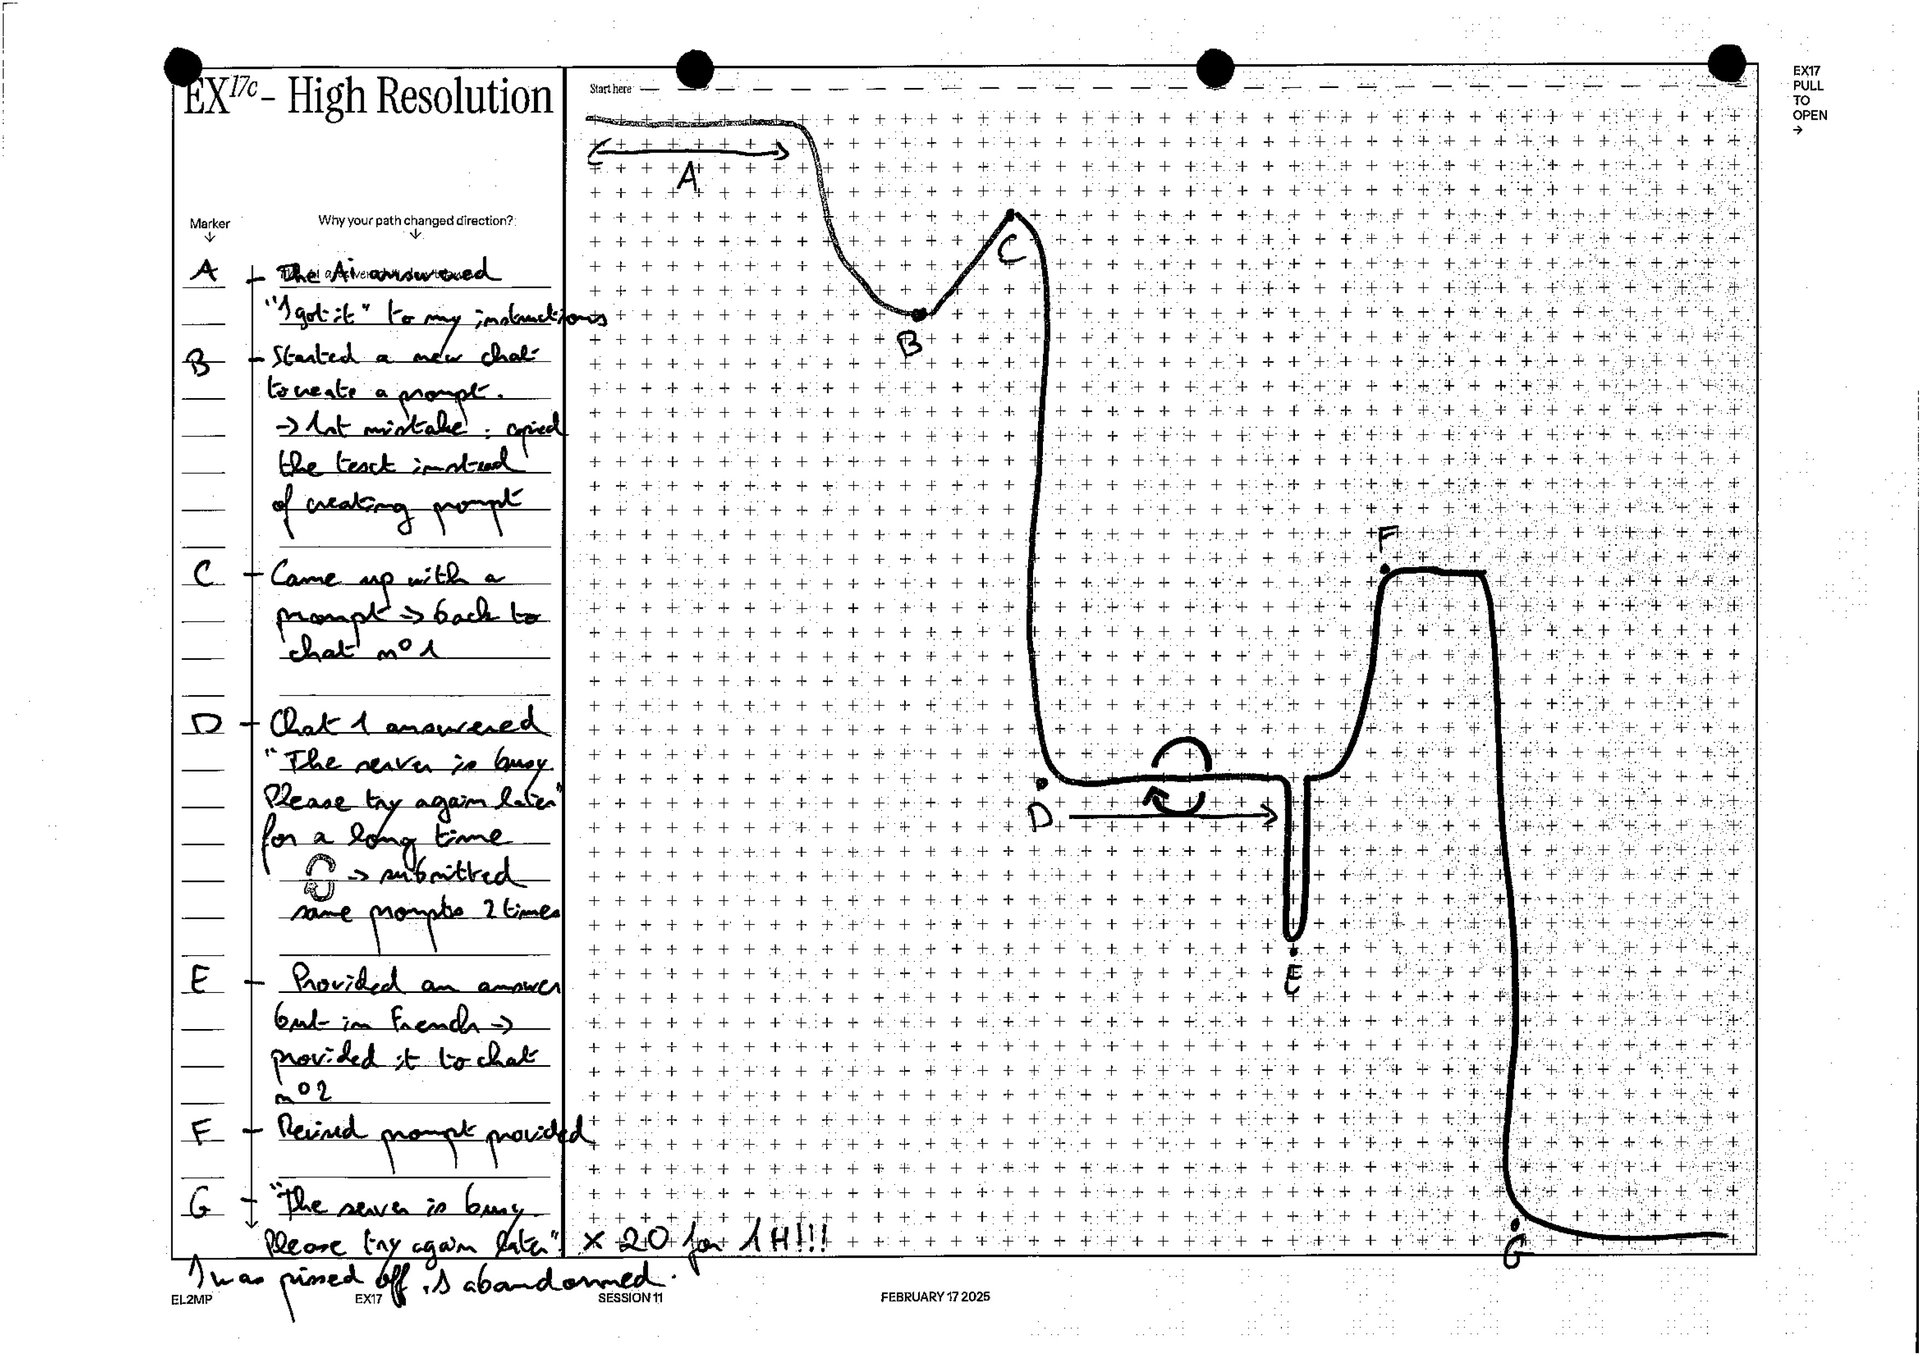 EX17c - High Resolution
Start here
EX17
PULL
TO
OPEN
→
Marker
Why your path changed direction?
↓
↓
A
The Ai answered
"I got it" to my instructions
B
Started a new chat
to create a prompt.
→ 1st mistake : copied
the text instead
of creating prompt
C
Came up with a
prompt → back to
chat n° 1
D
Chat 1 answered
"The server is busy.
Please try again later"
for a long time
→ submitted
same prompts 2 times
E
Provided an answer
but in French →
provided it to chat
n° 2
F
Revised prompt provided
G
"The server is busy.
Please try again later" × 20 for 1H!!!
I was pissed off. I abandonned.
A
B
C
D
E
F
G
EL2MP
EX17
SESSION 11
FEBRUARY 17 2025